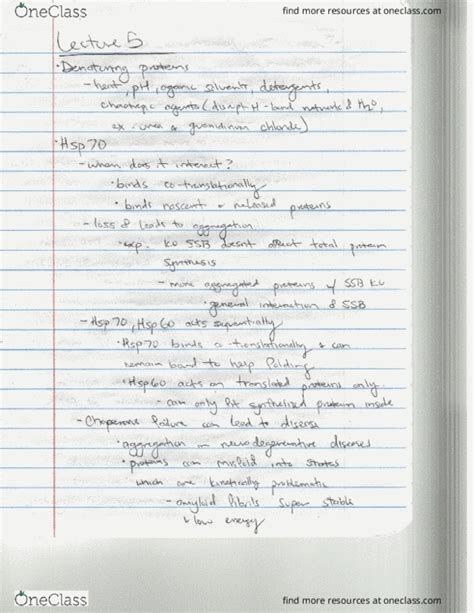 OneClass
find more resources at oneclass.com
Lecture 5
• Denaturing proteins
- heat, pH, organic solvents, detergents,
chaotropic agents (disrupt H-bond network & H2O,
ex. urea & guanidinium chloride)
• Hsp70
- when does it interact?
• binds co-translationally
• binds nascent & released proteins
- loss of leads to aggregation
• exp. KO SSB doesnt affect total protein
synthesis
- more aggregated proteins w/ SSB KO
• general interaction of SSB
- Hsp70, Hsp60 acts sequentially
• Hsp70 binds co-translationally & can
remain bond to help folding
• Hsp60 acts on translated proteins only
- can only fit synthesized protein inside
- Chaperone failure can lead to disease
• aggregation in neurodegenerative diseases
• proteins can misfold into states
which are kinetically problematic
- amyloid fibrils super stable
& low energy
OneClass
find more resources at oneclass.com